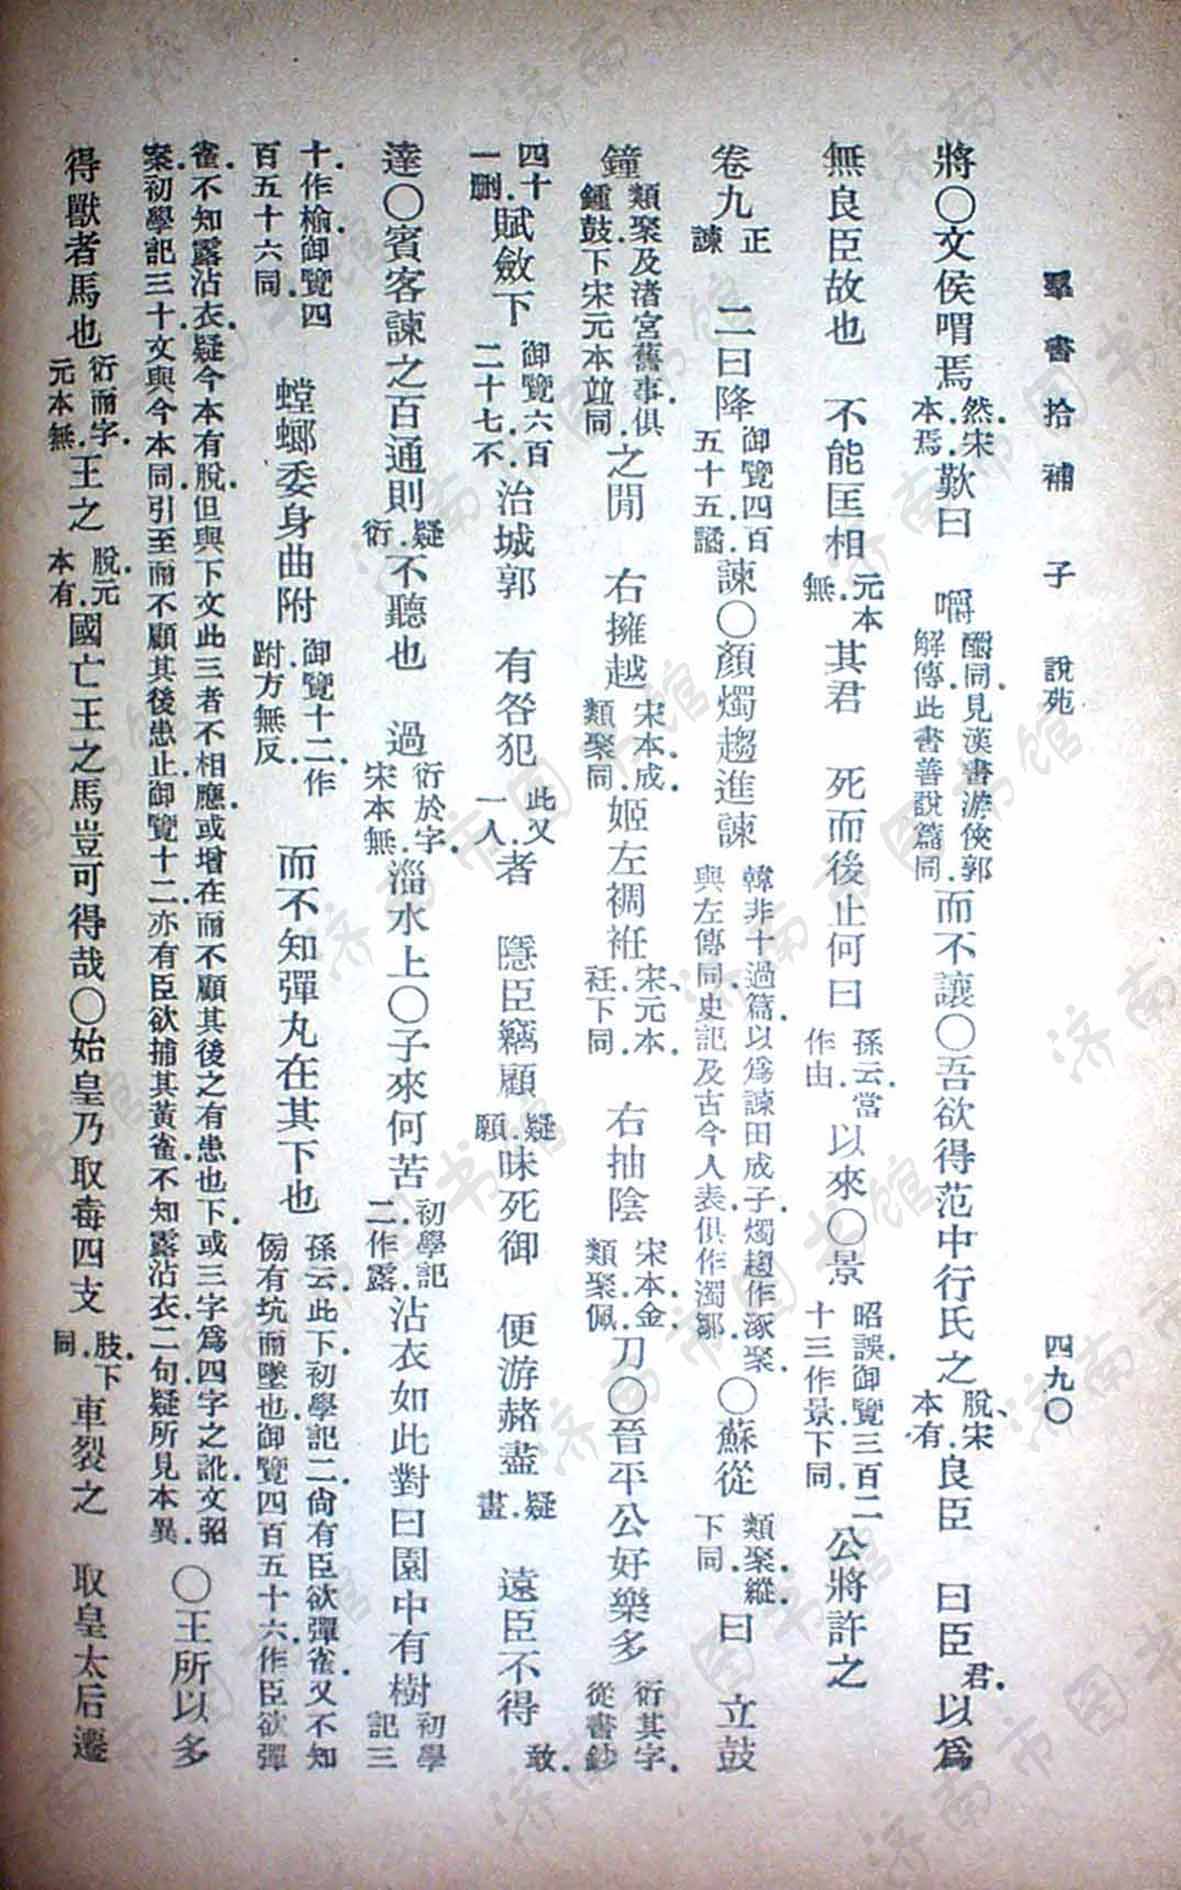 羣書拾補　子　說苑　四九〇
將〇文侯喟焉然宋本焉歎曰　嚼釂同見漢書游俠郭解傳此書善說篇同而不讓〇吾欲得范中行氏之脫宋本有良臣　曰臣君以爲
無良臣故也　不能匡相元本無其君　死而後止何曰孫云當作由以來〇景昭誤御覽三百二十三作景下同公將許之
卷九正諫　二曰降御覽四百五十五譎諫〇顏燭趨進諫韓非十過篇以爲諫田成子燭趨作涿聚與左傳同史記及古今人表俱作濁鄒〇蘇從類聚縱下同曰　立鼓
鐘類聚及渚宮舊事俱鍾鼓下宋元本竝同之閒　右擁越宋本成類聚同姬左裯袵宋元本衽下同　右抽陰宋本金類聚佩刀〇晉平公好樂多衍其字從書鈔
四十一删賦斂下御覽六百二十七不治城郭　有咎犯此又一人者　隱臣竊顧疑願昧死御　便游赭盡疑畫　遠臣不得敢
達〇賓客諫之百通則疑衍不聽也　過衍於字宋本無淄水上〇子來何苦初學記二作露沾衣如此對曰園中有樹初學記三
十作榆御覽四百五十六同　螳螂委身曲附御覽十二作跗方無反　而不知彈丸在其下也孫云此下初學記二尙有臣欲彈雀又不知傍有坑而墜也御覽四百五十六作臣欲彈
雀不知露沾衣疑今本有脫但與下文此三者不相應或增在而不顧其後之有患也下或三字爲四字之訛文弨案初學記三十文與今本同引至而不顧其後患止御覽十二亦有臣欲捕其黃雀不知露沾衣二句疑所見本異〇王所以多
得獸者馬也衍而字元本無王之脫元本有國亡王之馬豈可得哉〇始皇乃取毐四支肢下同　車裂之　取皇太后遷